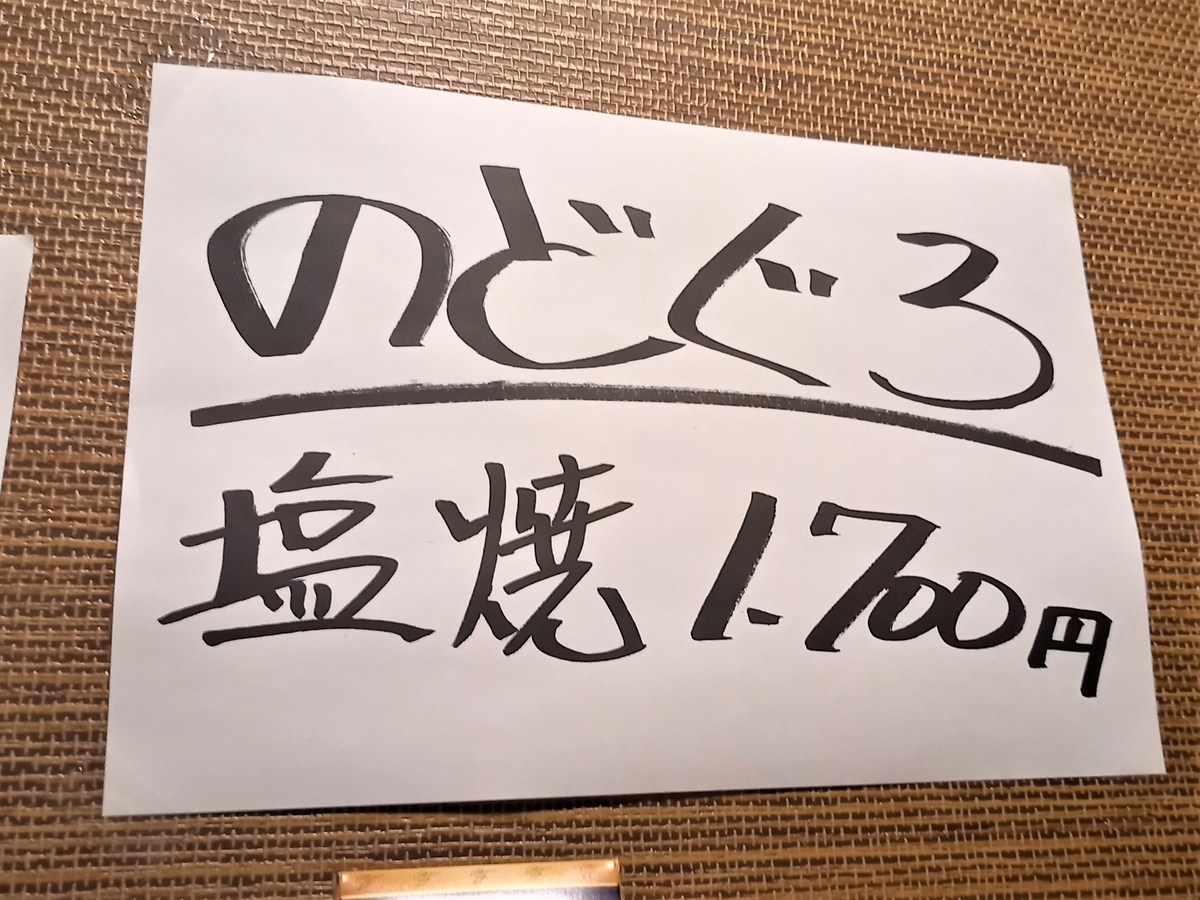 のどぐろ
塩焼 1.700円